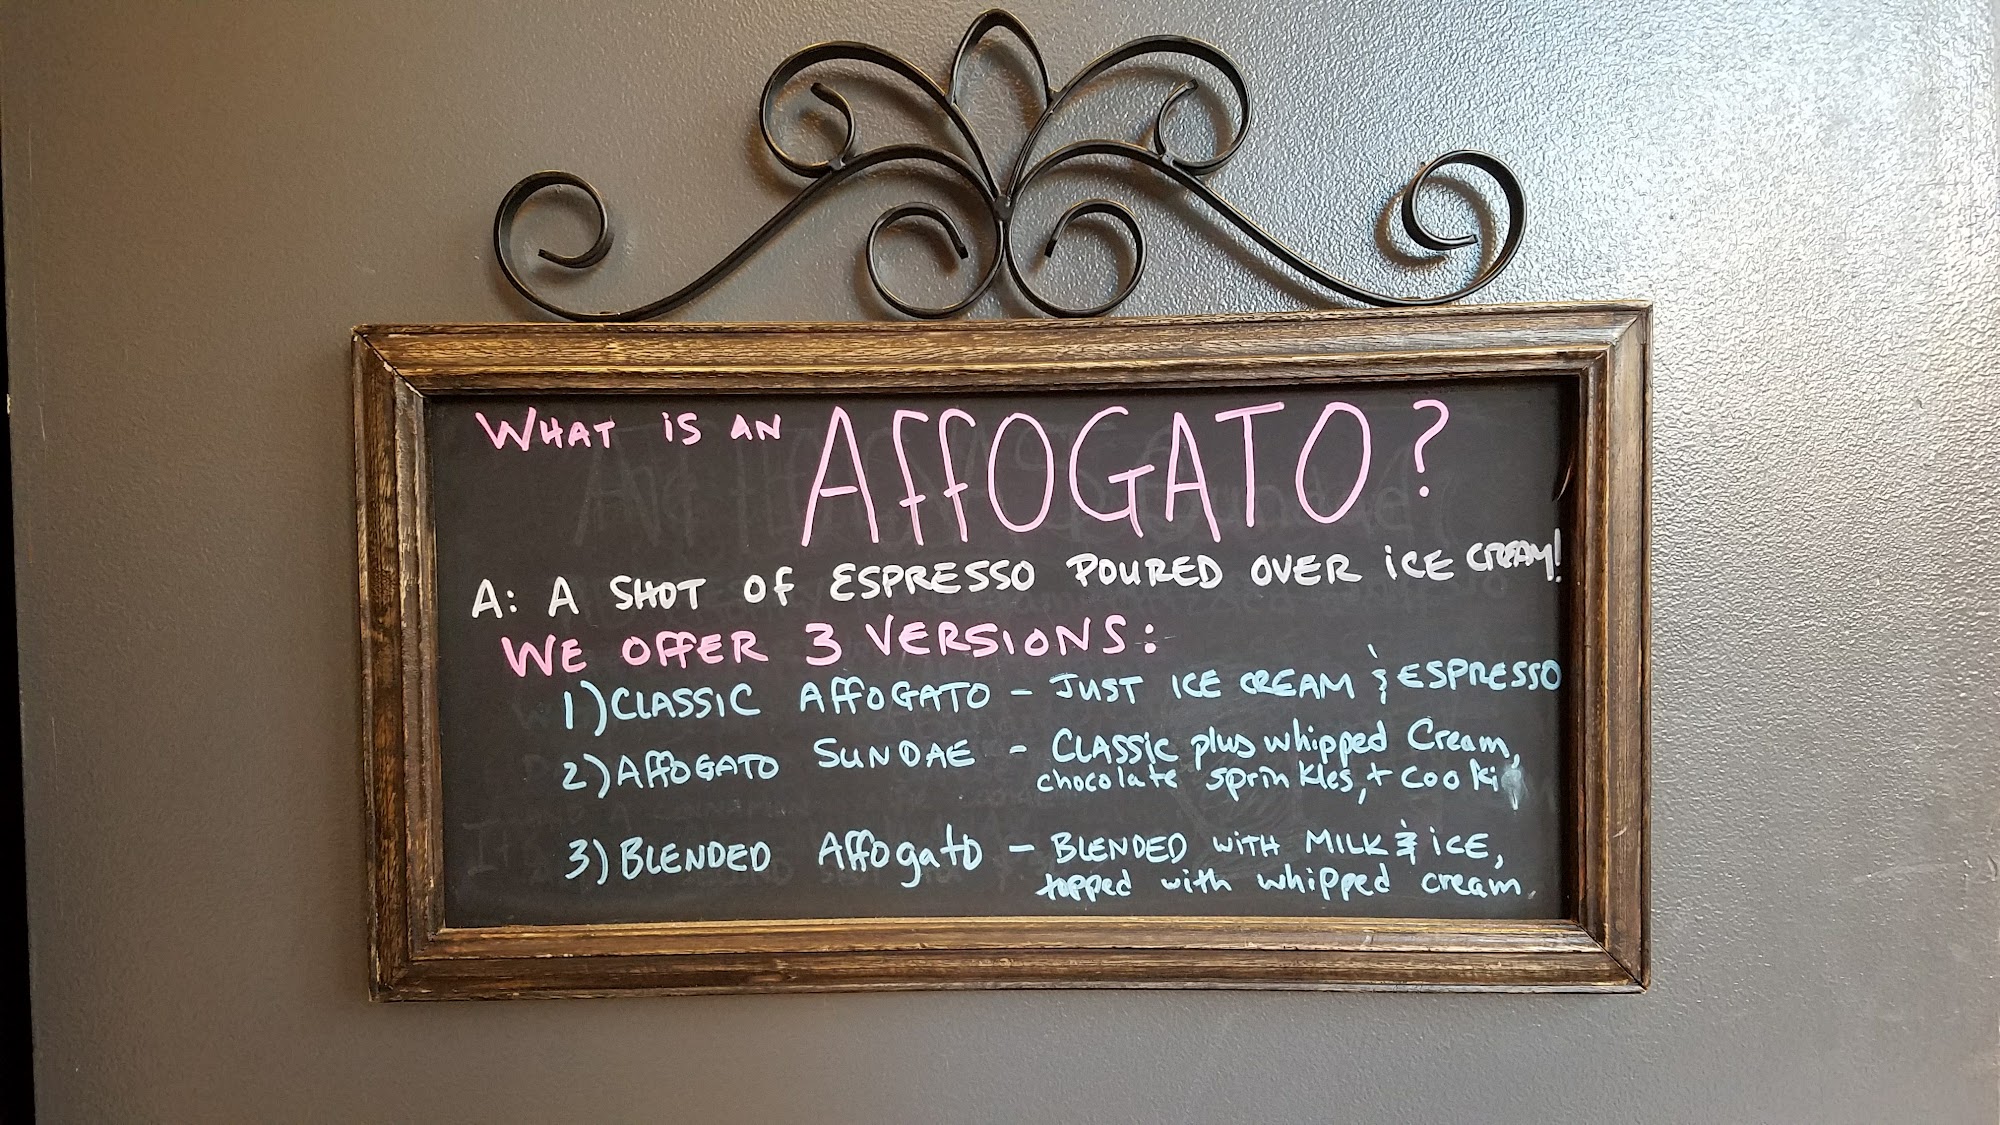 WHAT IS AN AFFOGATO?
A: A SHOT OF ESPRESSO POURED OVER ICE CREAM!
WE OFFER 3 VERSIONS:
1) CLASSIC AFFOGATO - JUST ICE CREAM & ESPRESSO
2) AFFOGATO SUNDAE - CLASSIC plus whipped Cream,
chocolate sprinkles, + cooki
3) BLENDED Affogato - BLENDED WITH MILK & ICE,
topped with whipped cream